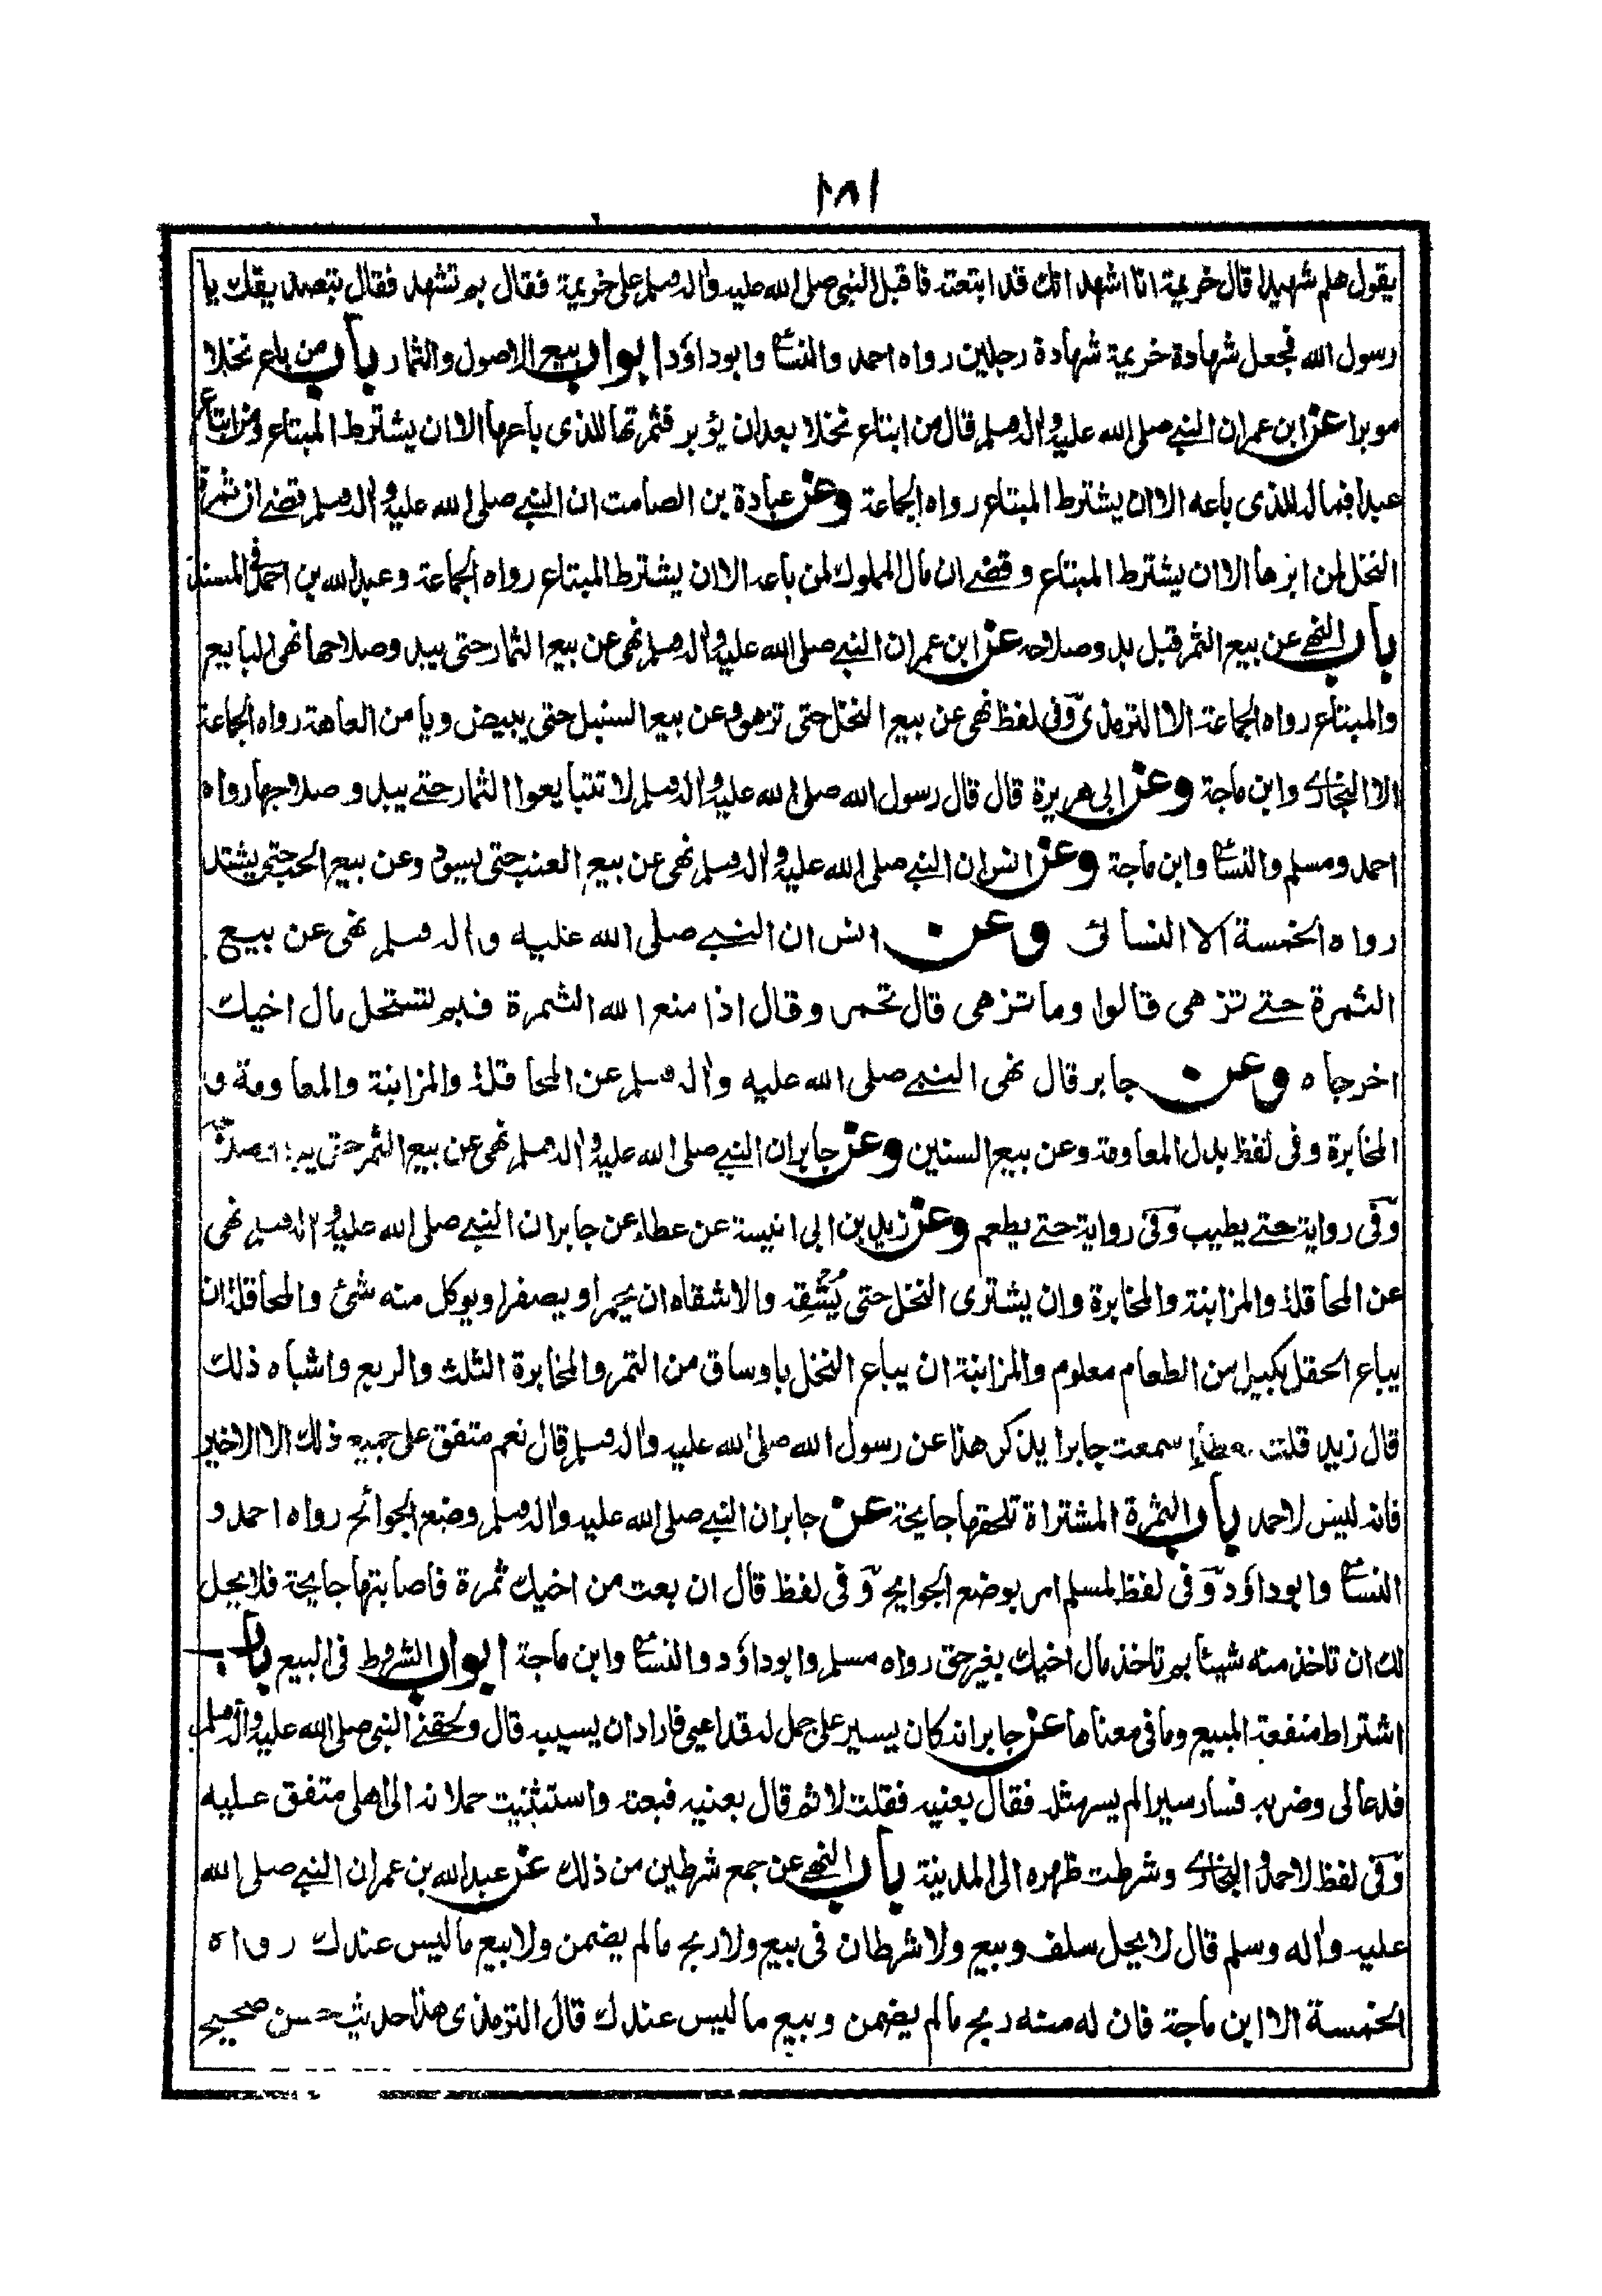 ١٨١
يقول هلم شهيدا قال خزيمة انا اشهد انك قد ابتعته فاقبل النبي صلى الله عليه واله وسلم على خزيمة فقال بم تشهد فقال بتصديقك يا
رسول الله فجعل شهادة خزيمة شهادة رجلين رواه احمد والنسائى وابوداؤد ابواب بيع الاصول والثمار باب من باع نخلا
موبرا عن ابن عمر ان النبي صلى الله عليه واله وسلم قال من ابتاع نخلا بعد ان يؤبر فثمرتها للذى باعها الا ان يشترط المبتاع ومن ابتاع
عبدا فماله للذى باعه الا ان يشترط المبتاع رواه الجماعة وعن عبادة بن الصامت ان النبي صلى الله عليه واله وسلم قضى ان ثمرة
النخل لمن ابرها الا ان يشترط المبتاع وقضى ان مال المملوك لمن باعه الا ان يشترط المبتاع رواه الجماعة وعبد الله بن احمد فى المسند
باب النهى عن بيع الثمر قبل بدو صلاحه عن ابن عمر ان النبي صلى الله عليه واله وسلم نهى عن بيع الثمار حتى يبدو صلاحها نهى البايع
والمبتاع رواه الجماعة الا الترمذى وفى لفظ نهى عن بيع النخل حتى تزهو وعن بيع السنبل حتى يبيض ويامن العاهة رواه الجماعة
الا البخارى وابن ماجة وعن ابى هريرة قال قال رسول الله صلى الله عليه واله وسلم لا تتبايعوا الثمار حتى يبدو صلاحها رواه
احمد ومسلم والنسائى وابن ماجة وعن انس ان النبي صلى الله عليه واله وسلم نهى عن بيع العنب حتى يسود وعن بيع الحب حتى يشتد
رواه الخمسة الا النسائى وعن انس ان النبي صلى الله عليه واله وسلم نهى عن بيع
الثمرة حتى تزهى قالوا وما تزهى قال تحمر وقال اذا منع الله الثمرة فبم تستحل مال اخيك
اخرجاه وعن جابر قال نهى النبي صلى الله عليه واله وسلم عن المحاقلة والمزابنة والمعاومة و
المخابرة وفى لفظ بدل المعاومة وعن بيع السنين وعن جابر ان النبي صلى الله عليه واله وسلم نهى عن بيع الثمر حتى يبدو صلاحه
وفى رواية حتى يطيب وفى رواية حتى يطعم وعن زيد بن ابى انيسة عن عطاء عن جابر ان النبي صلى الله عليه واله وسلم نهى
عن المحاقلة والمزابنة والمخابرة وان يشترى النخل حتى يُشْقِه والاشقاه ان يحمر او يصفر او يوكل منه شئ والمحاقلة ان
يباع الحقل بكيل من الطعام معلوم والمزابنة ان يباع النخل باوساق من التمر والمخابرة الثلث والربع واشباه ذلك
قال زيد قلت لعطاء اسمعت جابرا يذكر هذا عن رسول الله صلى الله عليه واله وسلم قال نعم متفق على جميع ذلك الا الاخير
فانه ليس لاحمد باب الثمرة المشتراة تلحقها جايحة عن جابر ان النبي صلى الله عليه واله وسلم وضع الجوائح رواه احمد و
النسائى وابوداؤد وفى لفظ لمسلم امر بوضع الجوايح وفى لفظ قال ان بعت من اخيك ثمرة فاصابتها جايحة فلا يحل
لك ان تاخذ منه شيئا بم تاخذ مال اخيك بغير حق رواه مسلم وابوداؤد والنسائى وابن ماجة ابواب الشروط فى البيع باب
اشتراط منفعة المبيع وما فى معناها عن جابر انه كان يسير على جمل له قد اعيى فاراد ان يسيبه قال ولحقنى النبي صلى الله عليه واله وسلم
فدعا لى وضربه فسار سيرا لم يسر مثله فقال بعنيه فقلت لا ثم قال بعنيه فبعته واستثنيت حملانه الى اهلى متفق عليه
وفى لفظ لاحمد والبخارى وشرطت ظهره الى المدينة باب النهى عن جمع شرطين من ذلك عن عبد الله بن عمر ان النبي صلى الله
عليه واله وسلم قال لا يحل سلف وبيع ولا شرطان فى بيع ولا ربح ما لم يضمن ولا بيع ما ليس عندك رواه
الخمسة الا ابن ماجة فان له منه ربح ما لم يضمن وبيع ما ليس عندك قال الترمذى هذا حديث حسن صحيح